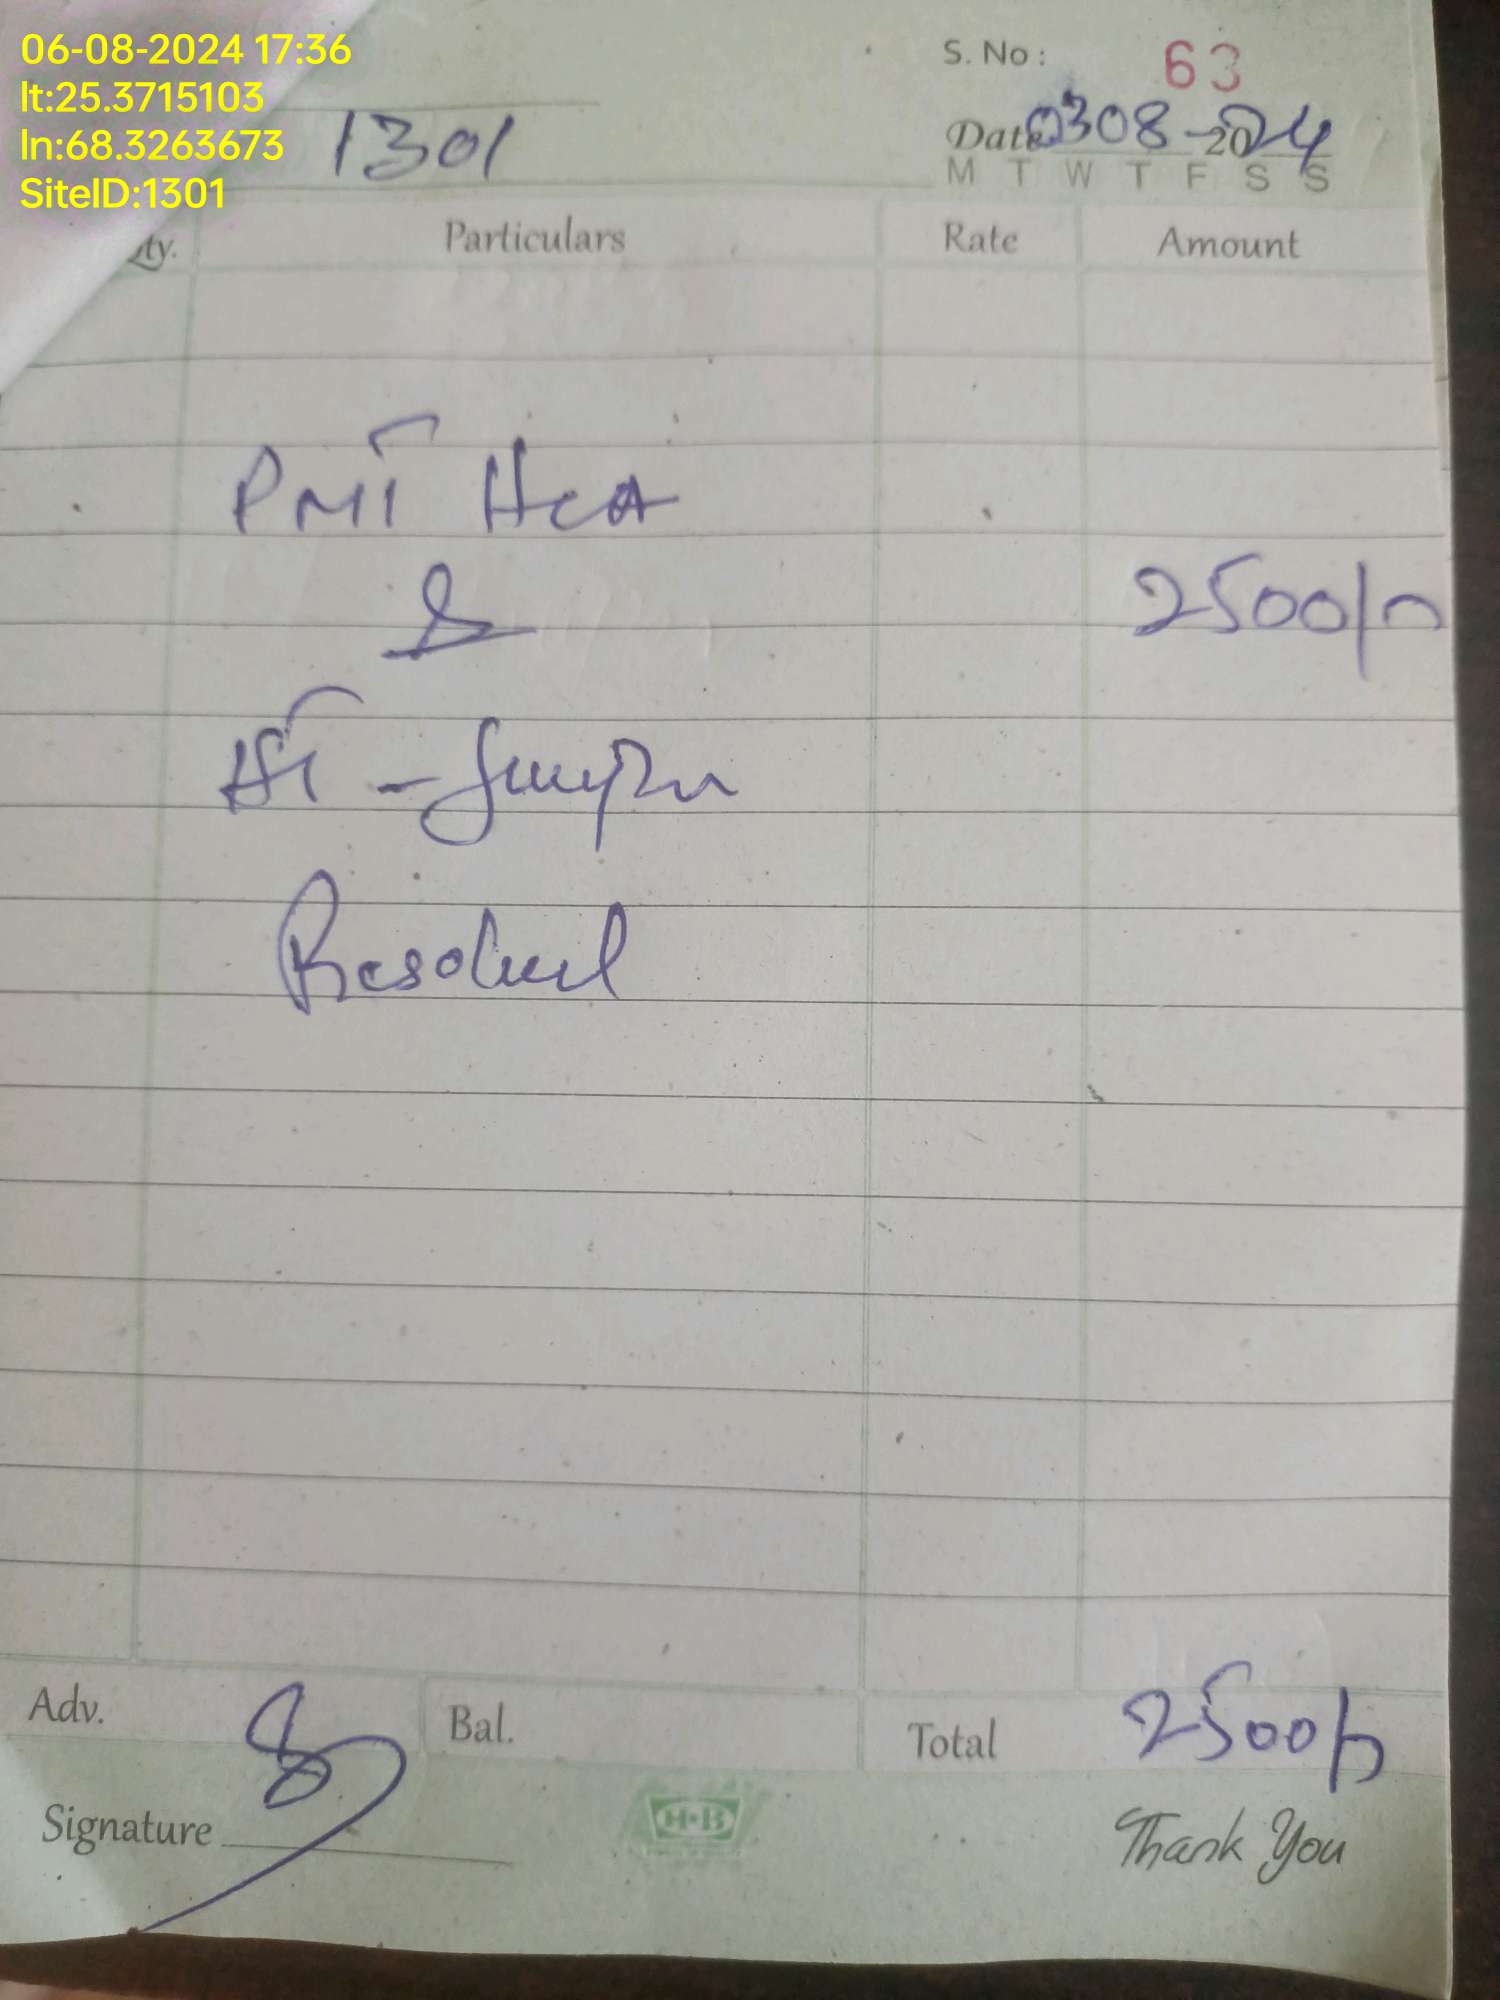 06-08-2024 17:36
lt:25.3715103
ln:68.3263673
SiteID:1301
S. No : 63
1301
Date 0308-2024
M T W T F S S
Qty. Particulars Rate Amount
PMT
&
2500/-
Resolved
Adv. Bal. Total 2500/-
Signature
H·B
Thank You